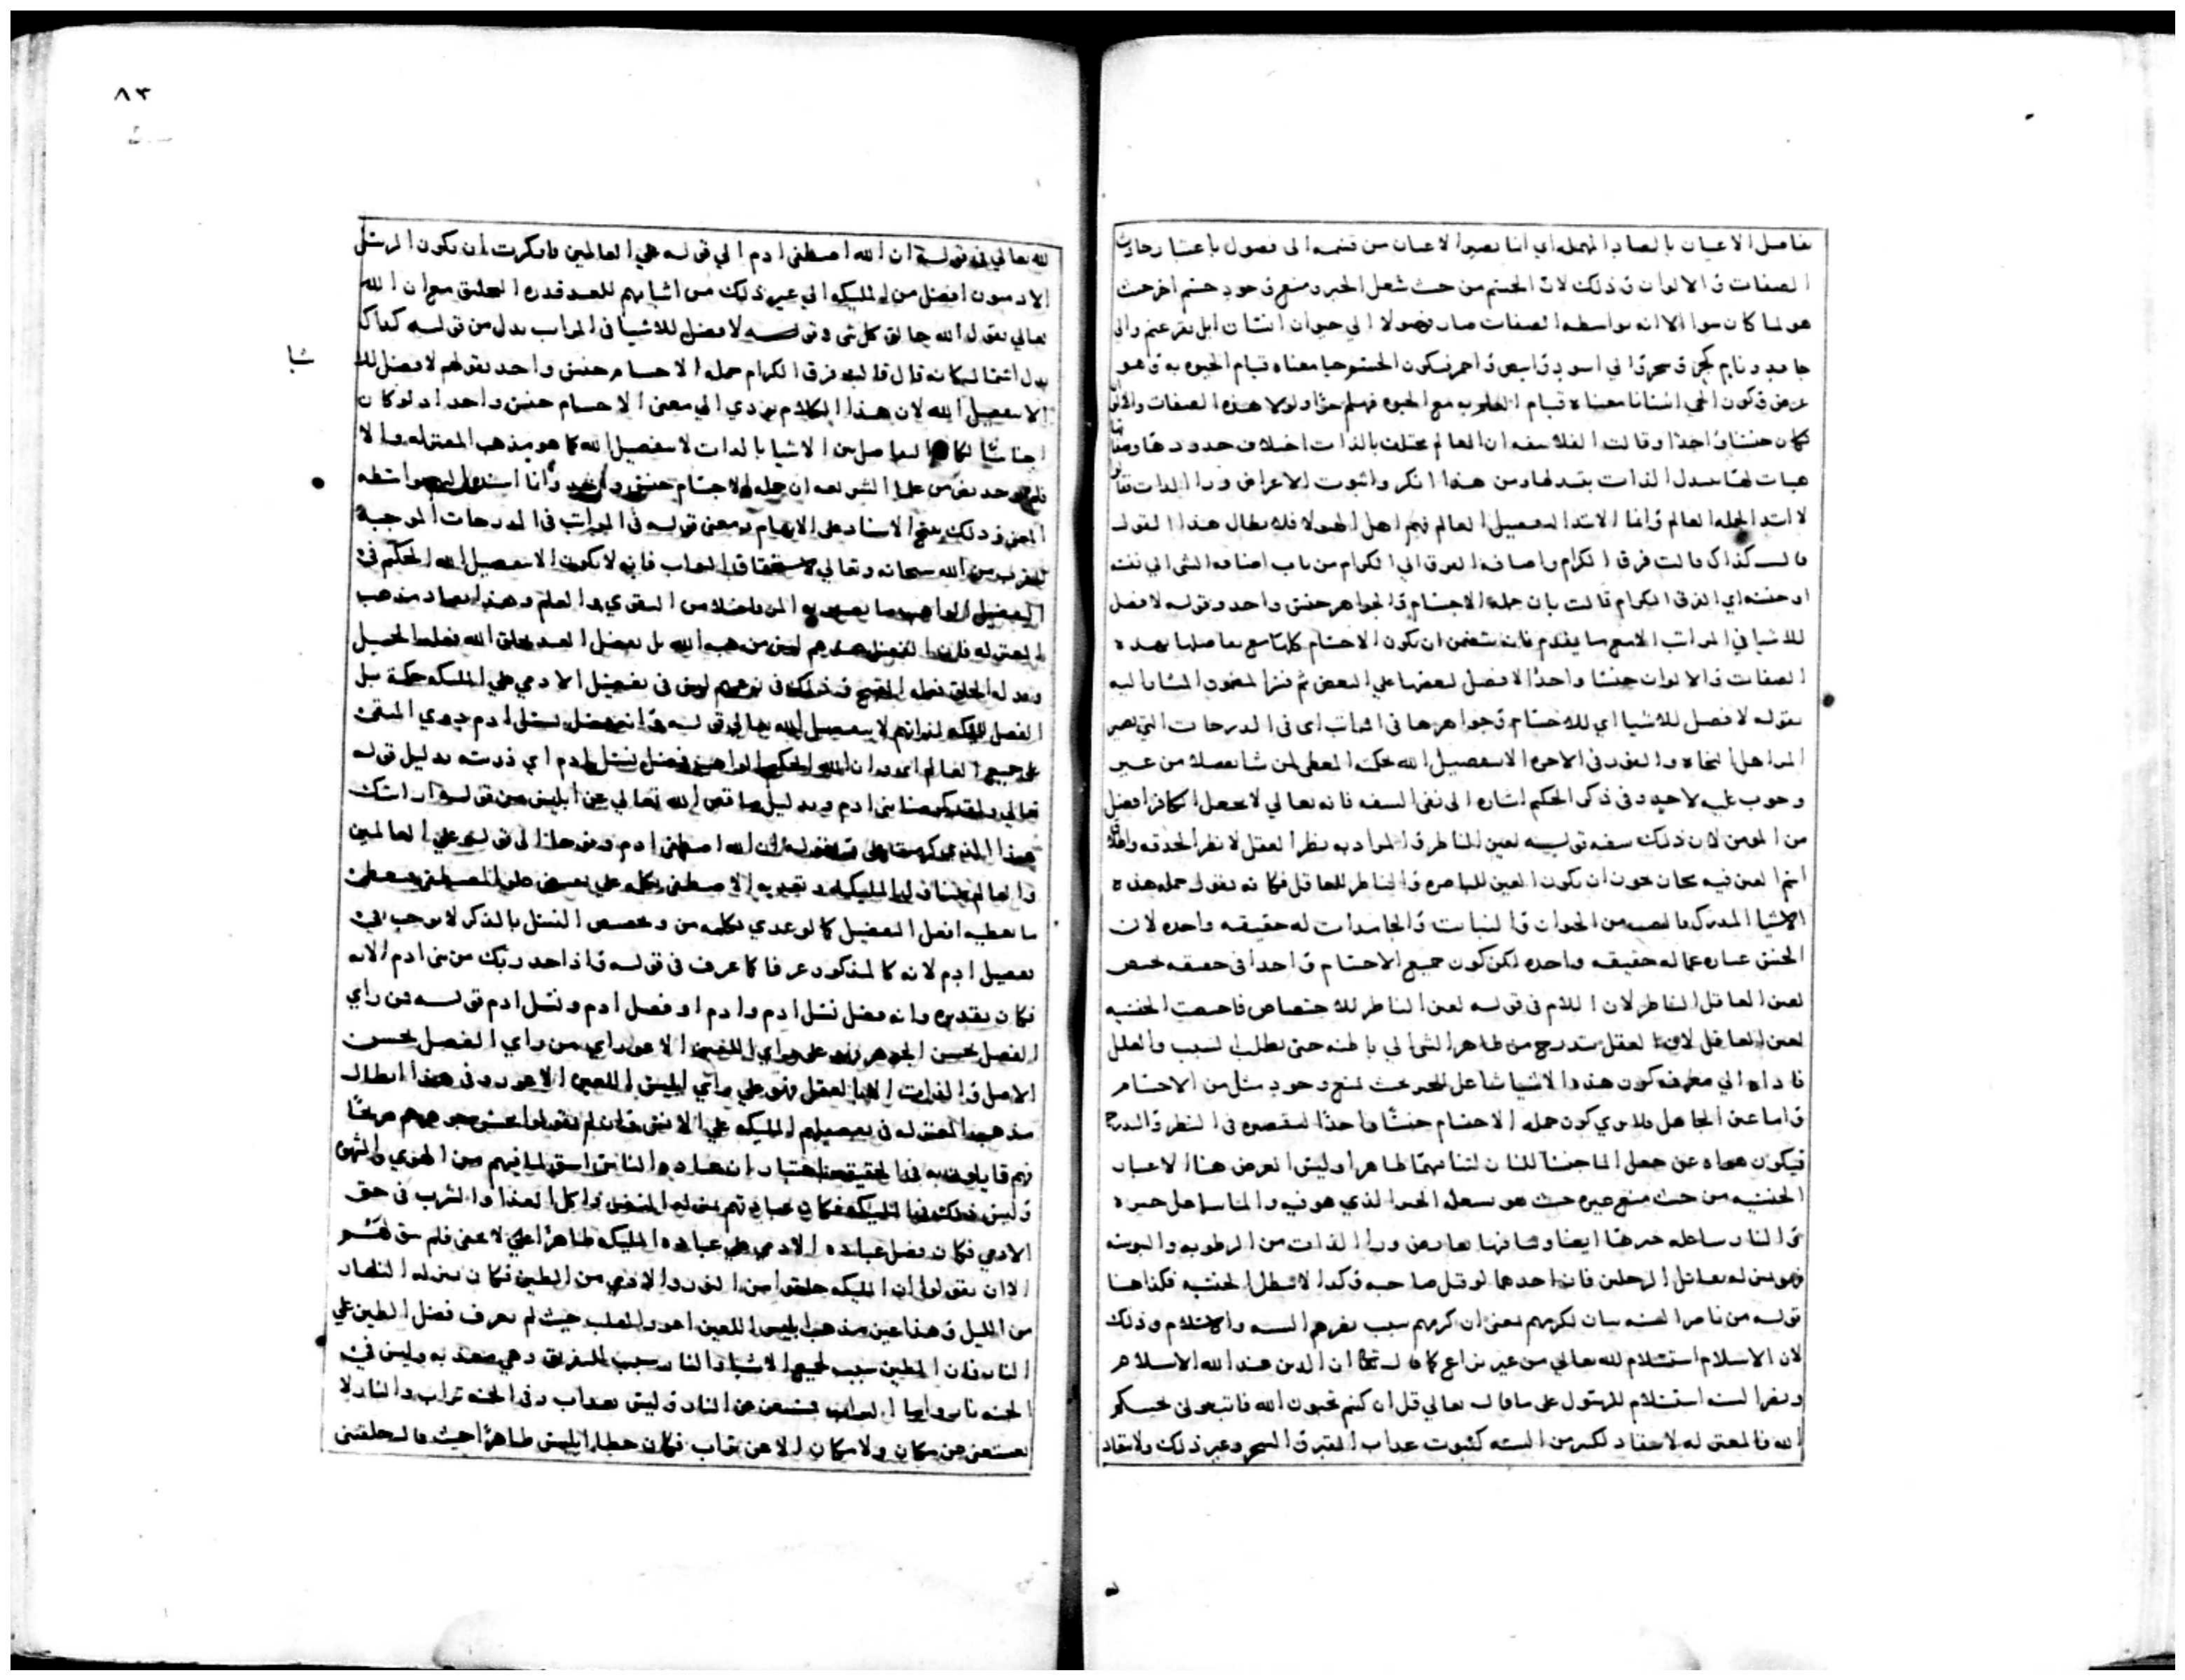 تفاصل الاعيان بالصاد المهملة اي انما تصير الاعيان من قسمه الى فصول باعتبار حادث
الصفات والالوان وذلك لان الجسم من حيث شغل الحيز ومنع وجود جسم اخر حيث
هو لما كان سوا الا انه بواسطه الصفات صار فصولا الي حيوان انسان ابل بقر غنم والي
جامد ونام كحجر وشجر والي اسود وابيض واحمر فيكون الجسم حيا معناه قيام الحيوه به وهو
عرض وكون الحي انسانا معناه قيام مع الحيوه فهلم جرا ولولا هذه الصفات والالوان
لكان جنسا واحدا وقالت الفلاسفه ان العالم مختلف بالذات اختلاف حدودها
هيات لها الذات من هذا انكروا ثبوت الاعراض ورا الذات
لابتدا لجمله العالم وانما الابتدا لتفصيل العالم فهم اهل الهيولا فلابطال هذا القول
قال كذاك قالت فرق الكرام واضافه الفرق الي الكرام من باب اضافه الشي الي نفسه
او جنسه اي الفرق الكرام قالت بان جمله الاجسام والجواهر جنس واحد وقوله لا فضل
للاشيا في المراتب الا مع ما يقدم فانه يتضمن ان يكون الاجسام كلها مع تفاصلها بهذه
الصفات والالوان جنسا واحدا لا فضل لبعضها علي البعض ثم المشار اليه
بقوله لا فضل للاشيا اي للاجسام وجواهرها في المراتب اي في الدرجات التي تصير
المرا اهل النجاه والفوز في الاخره الا بتفصيل الله بحكمه المعطي لمن شا بفضله من غير
وجوب عليه لاحد وفي ذكر الحكيم اشاره الى نفي السفه فانه تعالي لا يجعل الكافر افضل
من المومن لان ذلك سفه قوله لعين الناظر والمراد به نظر العقل لا نظر الحدقه
اسم العين فيه مجاز يجوز ان يكون العين للباصره والناظر للعاقل فكانه يقول جمله هذه
الاشيا المدرك بالعين من الحيوان والنبات والجامدات له حقيقه واحده لان
الجنس عباره عما له حقيقه واحده لكن كون جميع الاجسام واحدا في حقيقه يختص
لعين العاقل الناظر لان اللام في قوله لعين الناظر للاختصاص فاختصت الجنسيه
لعين العاقل لان العقل يتدرج من ظاهر الشي الي باطنه حتى يطلب السبب والعلل
فاداه الي معرفه كون هذه الاشيا شاغل للحيز بحيث يمنع وجود مثل من الاجسام
واما عين الجاهل فلا يري كون جمله الاجسام جنسا واحدا لتقصيره في النظر والتدرج
فيكون عن جعل الما جنسا للنار لتنافيهما ظاهرا وليس الغرض هنا الا عبار
الجنسيه من حيث منع غيره حيث هو بشغل الحيز الذي هو فيه والما شاغل حيزه
والنار شاغله حيزها ايضا وتنافيهما بعارض ورا الذات من الرطوبه واليبوسه
وهو بمنزله تقاتل الرجلين فان احدهما لو قتل صاحبه وكذا لا تبطل الجنسيه فكذا هنا
قوله من ناصر السنه بيان لكرمهم يعني ان كرمهم سبب نصرهم السنه والاسلام وذلك
لان الاسلام استسلام لله تعالي من غير نزاع كما قال تعالى ان الدين عند الله الاسلام
ونصر السنه استسلام للرسول على ما قال تعالي قل ان كنتم تحبون الله فاتبعوني يحببكم
الله فالمعتزله لا انقياد لكثير من السنه كثبوت عذاب القبر والسحر وغير ذلك ولا انقياد
٨٣
لله تعالي في قوله ان الله اصطفى ادم الي قوله علي العالمين فانكرت ان يكون الرسل
الادميون افضل من المليكه الي غير ذلك من اثباتهم للعبد قدره التخليق مع ان الله
تعالي يقول الله خالق كل شي وقوله لا فضل للاشيا في المراتب بدل من قوله كذاك
بدل اشتمال فكانه قال قالت فرق الكرام جمله الاجسام جنس واحد بقولهم لا فضل لذا
الا بتفصيل الله لان هذا الكلام يودي الي معنى الاجسام جنس واحد اذ لو كان
شيا
اجناسا لكان التفاصل من الاشيا بالذات لا بتفصيل الله كما هو مذهب المعتزله والا
فلم يوجد نص من علما الشريعه ان جمله الاجسام جنس واحد وانما بواسطه
المعنى وذلك يمنع الاسناد على الابهام ومعنى قوله في المراتب في الدرجات الموجبه
للقرب من الله سبحانه وتعالي لاستحقاق الثواب فانه لا يكون الا بتفصيل الله الحكيم في
التفضيل الواهب ما يصير به المرء فاضلا من التقوي والعلم وهذا يضاد مذهب
المعتزله فان الفضل عندهم ليس من هبه الله بل بفضل العبد بخلق الله فعله الجميل
الفضل للمليكه لذاتهم لا بتفصيل الله تعالي قوله وانه فضل نسل ادم ذوي المتقى
على جميع العالم اي وان الله الحكيم الواهب فضل نسل ادم اي ذريته بدليل قوله
تعالي ولقد كرمنا بني ادم وبدليل ما قص الله تعالي عن ابليس من قوله ارايتك
هذا الذي كرمت علي وبقوله ان الله اصطفى ادم ونوحا الى قوله علي العالمين
والعالم يتناول المليكه وتعديه الاصطفى بكلمه علي يقتضي علو المصطفى معطى
ما يعطيه افعل التفضيل كما لو عدي بكلمه من وتخصيص النسل بالذكر لا يوجب نفي
تفضيل ادم لانه كالمذكور عرفا كما عرف في قوله واذ اخذ ربك من بني ادم الايه
فكان تقديره وانه فضل نسل ادم وادم او فضل ادم ونسل ادم قوله من راي
الفضل بحسن الجوهر فهو على راي اللعين الاعور اي من راي الفضل بحسن
الاصل والذات لا بالعقل فهو علي راي ابليس اللعين الاعور وفي هذا ابطال
مذهب المعتزله في تفضيلهم المليكه علي الانس وان لم يقولوا بحسن جوهرهم صريحا
فهم قايلون به في الحقيقه باعتبار ان عباده الناس اشق لما فيهم من الهوي والشهوه
وليس ذلك في المليكه فكان عبادتهم بمنزله التنفس واكل الغذا والشرب في حق
الادمي فكان فضل عباده الادمي علي عباده المليكه ظاهرا جلي لا يخفى فلم يبق لهم
الا ان يقولوا ان المليكه خلقوا من النور والادمي من الطين فكان بمنزله النهار
من الليل وهذا عين مذهب ابليس اللعين اعور القلب حيث لم يعرف فضل الطين علي
النار فان الطين سبب لجميع الاشيا والنار سبب للتفريق وهي معذبه وليس في
الجنه نار واما التراب مستغن عن النار وليس بعذاب وفي الجنه تراب والنار لا
يستغني عن مكان ولا مكان الا عن تراب فكان خطا ابليس ظاهرا حيث قال خلقتني